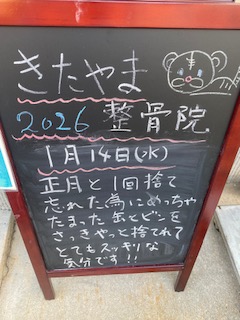 きたやま
2026 整骨院
1月14日(水)
正月と1回捨て
忘れた為にめっちゃ
たまった缶とビンを
さっきやっと捨てれて
とてもスッキリな
気分です!!